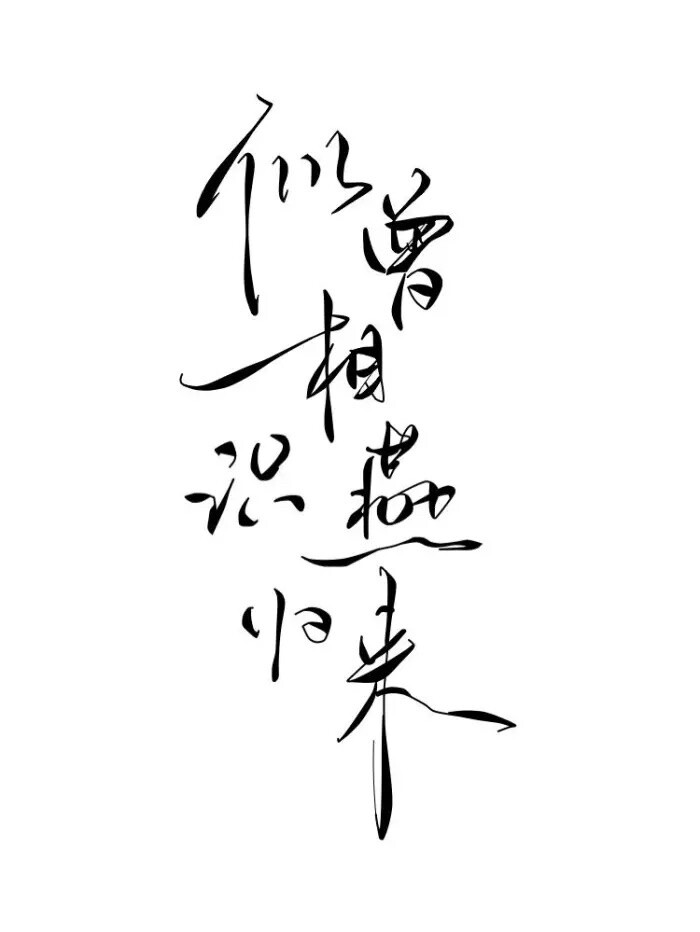 似曾相识燕归来